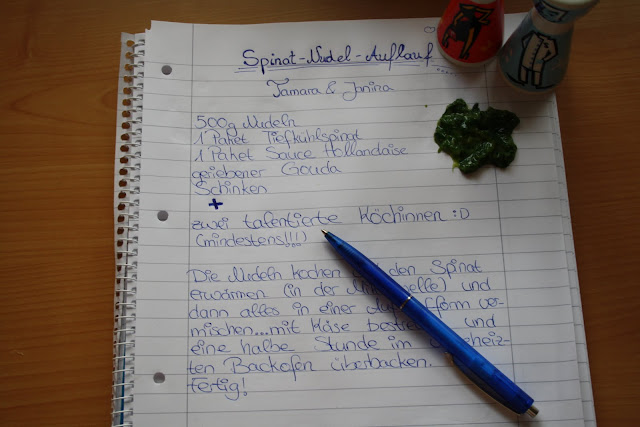 Spinat-Nudel-Auflauf
Tamara & Janina
500g Nudeln
1 Paket Tiefkühlspinat
1 Paket Sauce Hollandaise
geriebener Gouda
Schinken
+
zwei talentierte Köchinnen :D
(mindestens!!!)
Die Nudeln kochen den Spinat
erwärmen (in der und
dann alles in einer ver-
mischen...mit Käse und
eine halbe Stunde im
ten Backofen überbacken.
Fertig!